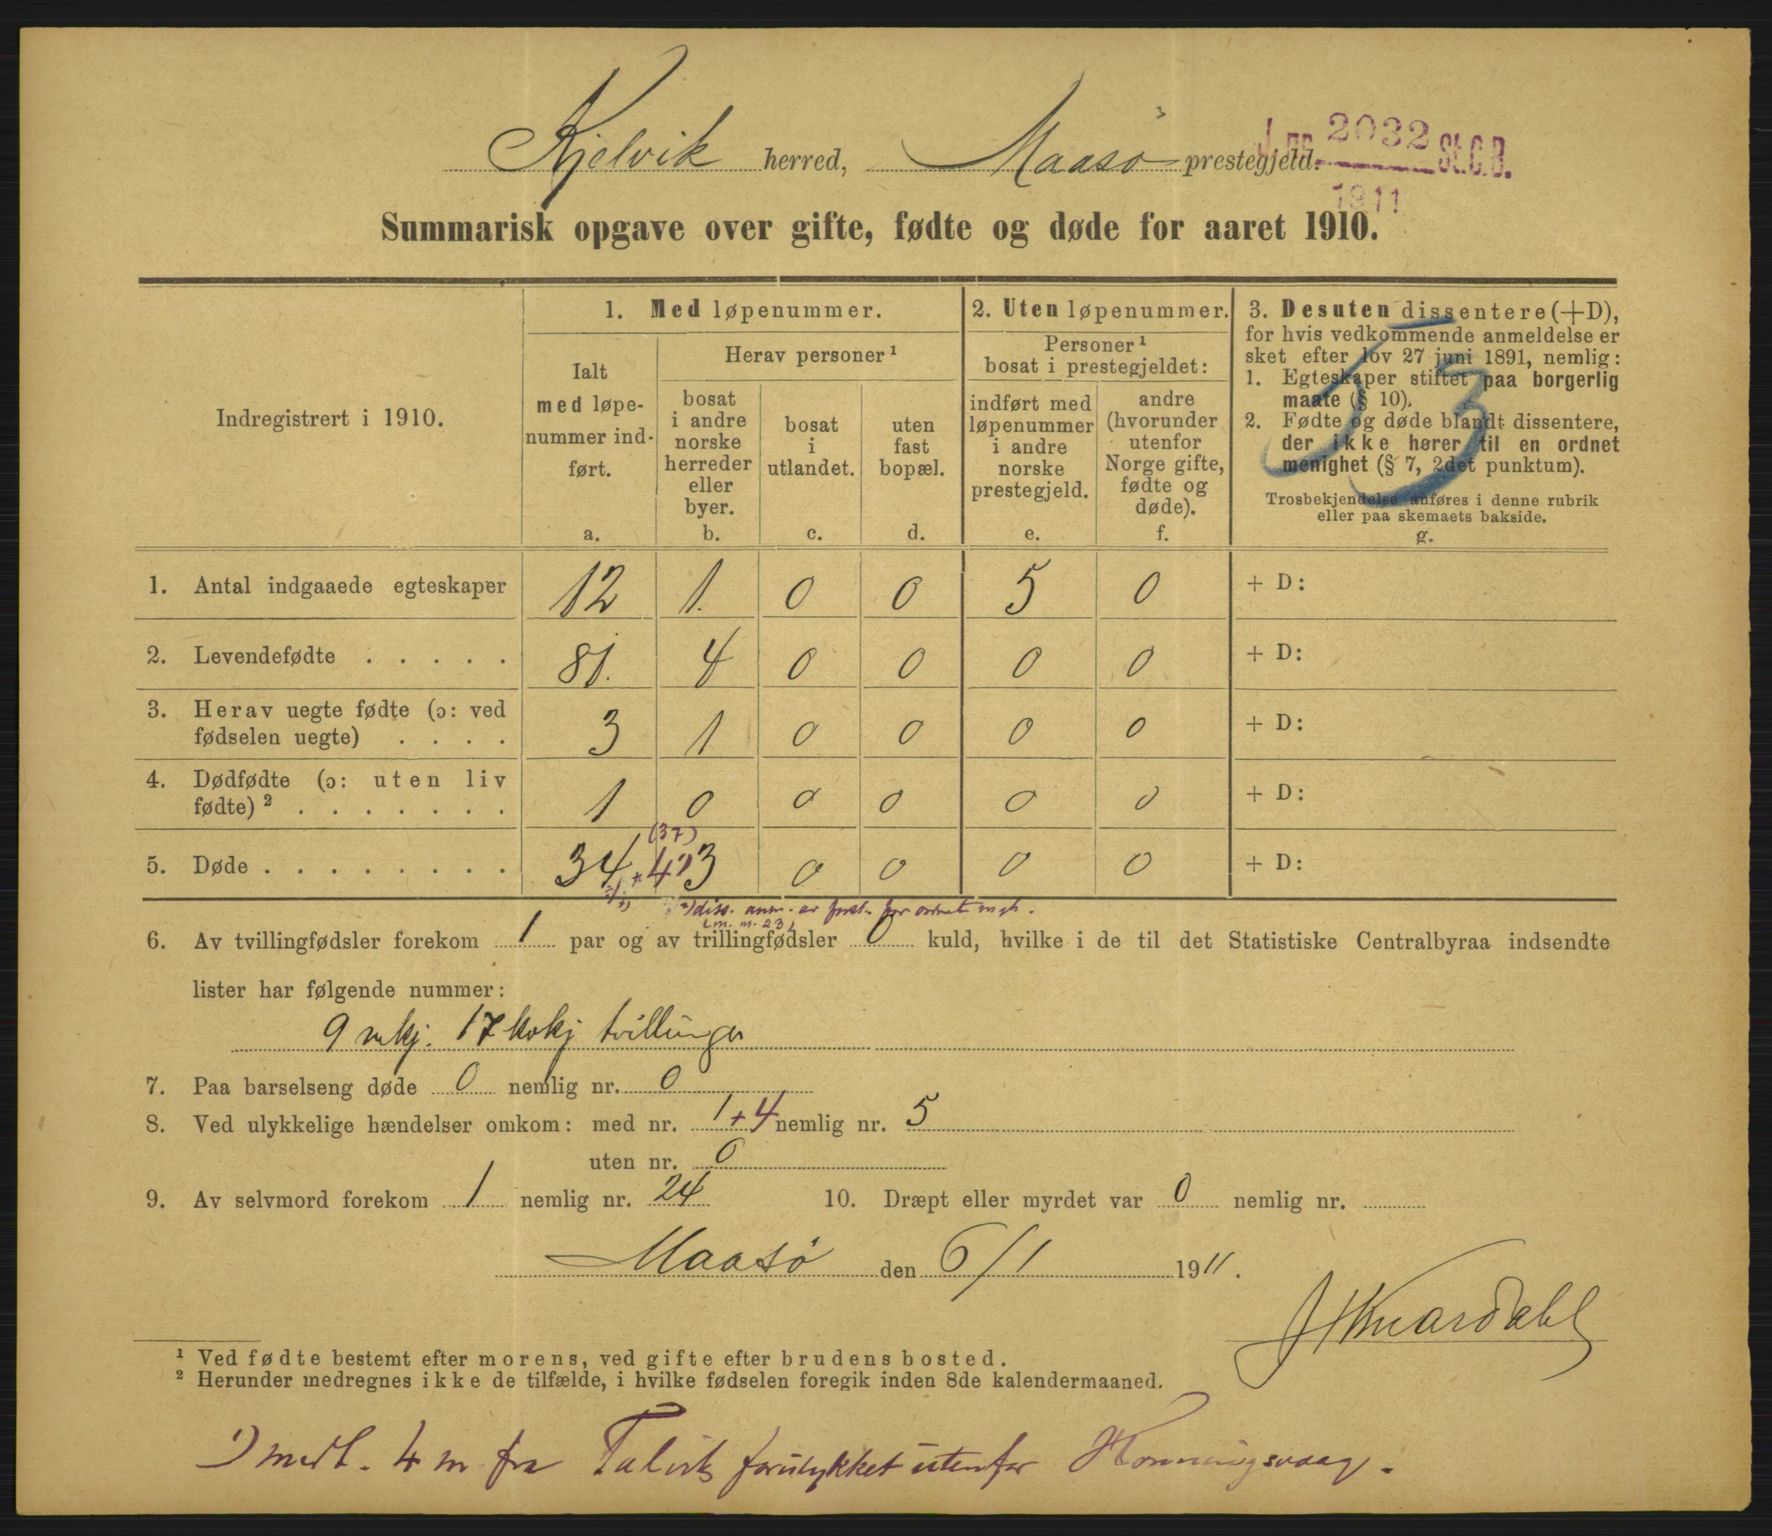 Kjelvik herred, Maasö prestegjeld.
J. nr. 2032 St.C.B.
1911
Summarisk opgave over gifte, fødte og døde for aaret 1910.
Indregistrert i 1910.
1. Med løpenummer.
Ialt
med løpe-
nummer ind-
ført.
a.
Herav personer ¹
bosat
i andre
norske
herreder
eller
byer.
b.
bosat
i
utlandet.
c.
uten
fast
bopæl.
d.
2. Uten løpenummer.
Personer ¹
bosat i prestegjeldet:
indført med
løpenummer
i andre
norske
prestegjeld.
e.
andre
(hvorunder
utenfor
Norge gifte,
fødte og
døde).
f.
3. Desuten dissentere (+D),
for hvis vedkommende anmeldelse er
sket efter lov 27 juni 1891, nemlig:
1. Egteskaper stiftet paa borgerlig
maate (§ 10).
2. Fødte og døde blandt dissentere,
der ikke hører til en ordnet
menighet (§ 7, 2det punktum).
Trosbekjendelse anføres i denne rubrik
eller paa skemaets bakside.
g.
53
1. Antal indgaaede egteskaper 12 1. 0 0 5 0 + D:
2. Levendefødte . . . . . 81. 4 0 0 0 0 + D:
3. Herav uegte fødte (ɔ: ved
fødselen uegte) . . . . 3 1 0 0 0 0 + D:
4. Dødfødte (ɔ: uten liv
fødte) ² . . . . . . . 1 0 0 0 0 0 + D:
(37)
5. Døde . . . . . . . . 34 + 4 3 0 0 0 0 + D:
(m. m. 23)
6. Av tvillingfødsler forekom 1 par og av trillingfødsler 0 kuld, hvilke i de til det Statistiske Centralbyraa indsendte
lister har følgende nummer:
9 mkj. 17 kvkj tvillinger
7. Paa barselseng døde 0 nemlig nr. 0
8. Ved ulykkelige hændelser omkom: med nr. 1 + 4 nemlig nr. 5
uten nr. 0
9. Av selvmord forekom 1 nemlig nr. 24 10. Dræpt eller myrdet var 0 nemlig nr.
Maasö den 6/1 1911.
JHKvardahl
¹ Ved fødte bestemt efter morens, ved gifte efter brudens bosted.
² Herunder medregnes ikke de tilfælde, i hvilke fødselen foregik inden 8de kalendermaaned.
1) medt. 4 m fra Talvik forulykket utenfor Honningsvaag.